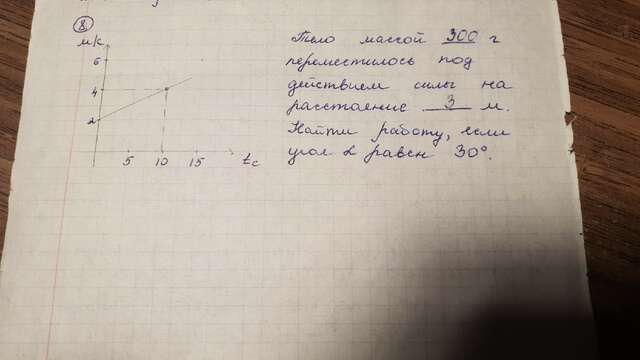 8
м/с
6
4
2
5 10 15 t c
Тело массой 300 г
переместилось под
действием силы на
расстояние 3 м.
Найти работу, если
угол α равен 30°.